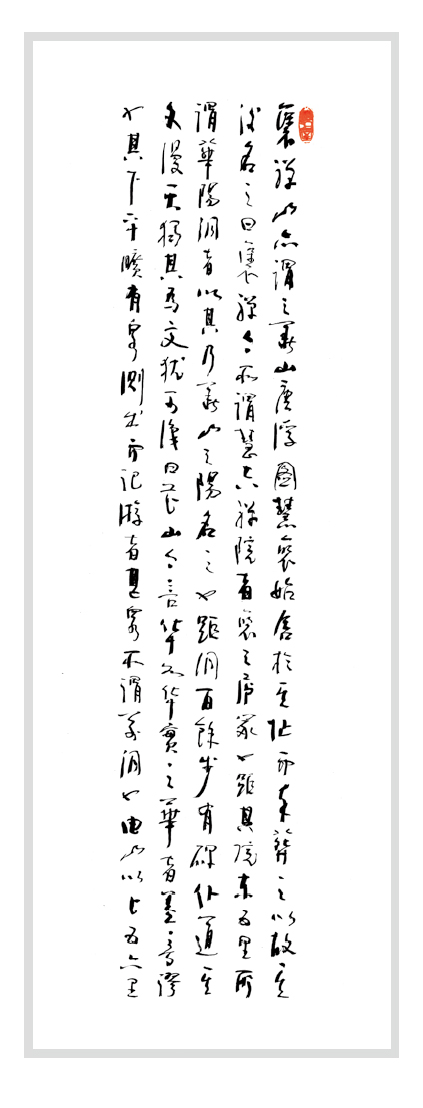 褒禪山亦謂之華山唐浮圖慧褒始舍於其址而卒葬之以故其
後名之曰褒禪今所謂慧空禪院者褒之廬冢也距其院東五里所
謂華陽洞者以其乃華山之陽名之也距洞百餘步有碑仆道其
文漫灭獨其為文猶可識曰花山今言華如華實之華者蓋音謬
也其下平曠有泉側出而記游者甚眾所謂前洞也由山以上五六里